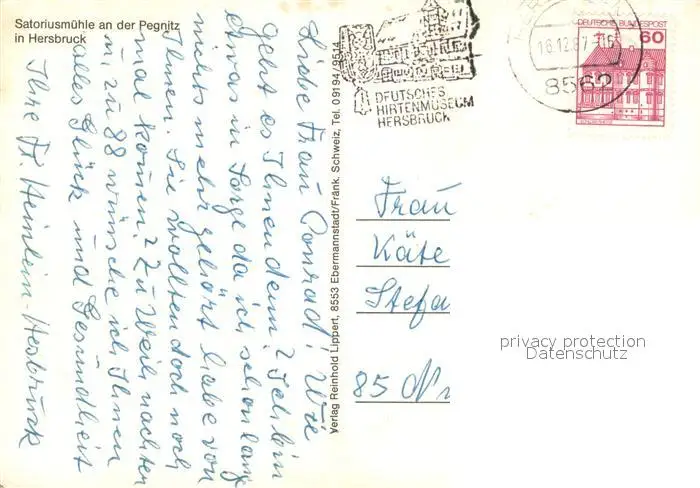 Satoriusmühle an der Pegnitz
in Hersbruck
Liebe Frau Conrad! Wie
geht es Ihnen denn? Ich bin
etwas in Sorge da ich schon lang
nichts mehr gehört habe von
Ihnen. Sie wollten doch noch
mal kommen? Zu Weihnachten
u. zu 88 wünsche ich Ihnen
alles Glück und Gesundheit
Ihre Fr. Heinlein. Hersbruck
Verlag Reinhold Lippert, 8553 Ebermannstadt/Fränk. Schweiz, Tel. 09194/9514
DEUTSCHES
HIRTENMUSEUM
HERSBRUCK
16.12.87
8562
DEUTSCHE BUNDESPOST
60
Frau
Käte
Stefa
85 N
privacy protection
Datenschutz